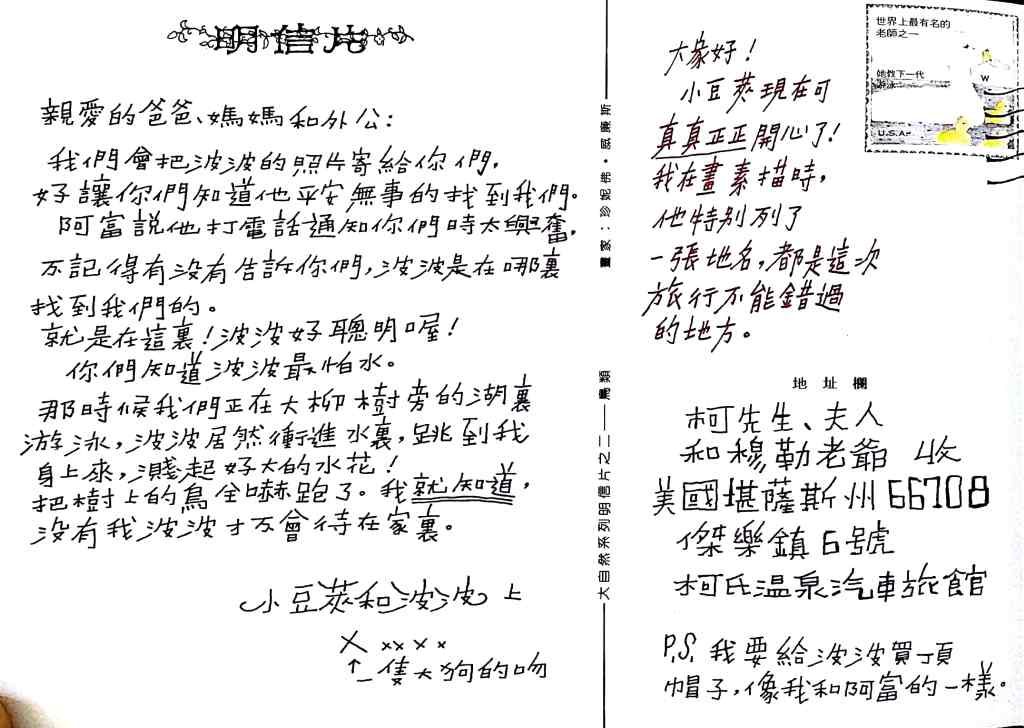 明信片
親愛的爸爸、媽媽和外公：
我們會把波波的照片寄給你們，
好讓你們知道他平安無事的找到我們。
阿富說他打電話通知你們時太興奮，
不記得有沒有告訴你們，波波是在哪裏
找到我們的。
就是在這裏！波波好聰明喔！
你們知道波波最怕水。
那時候我們正在大柳樹旁的湖裏
游泳，波波居然衝進水裏，跳到我
身上來，濺起好大的水花！
把樹上的鳥全嚇跑了。我就知道，
沒有我波波才不會待在家裏。
小豆莢和波波 上
X xx x x
↑一隻大狗的吻
畫家：珍妮弗·威廉斯
大自然系列明信片之二——鳥類
世界上最有名的
老師之一
她教下一代
游泳
W
U.S.A.
大家好！
小豆莢現在可
真真正正開心了！
我在畫素描時，
他特別列了
一張地名，都是這次
旅行不能錯過
的地方。
地址欄
柯先生、夫人
和穆勒老爺 收
美國堪薩斯州66708
傑樂鎮6號
柯氏溫泉汽車旅館
P.S. 我要給波波買頂
帽子，像我和阿富的一樣。